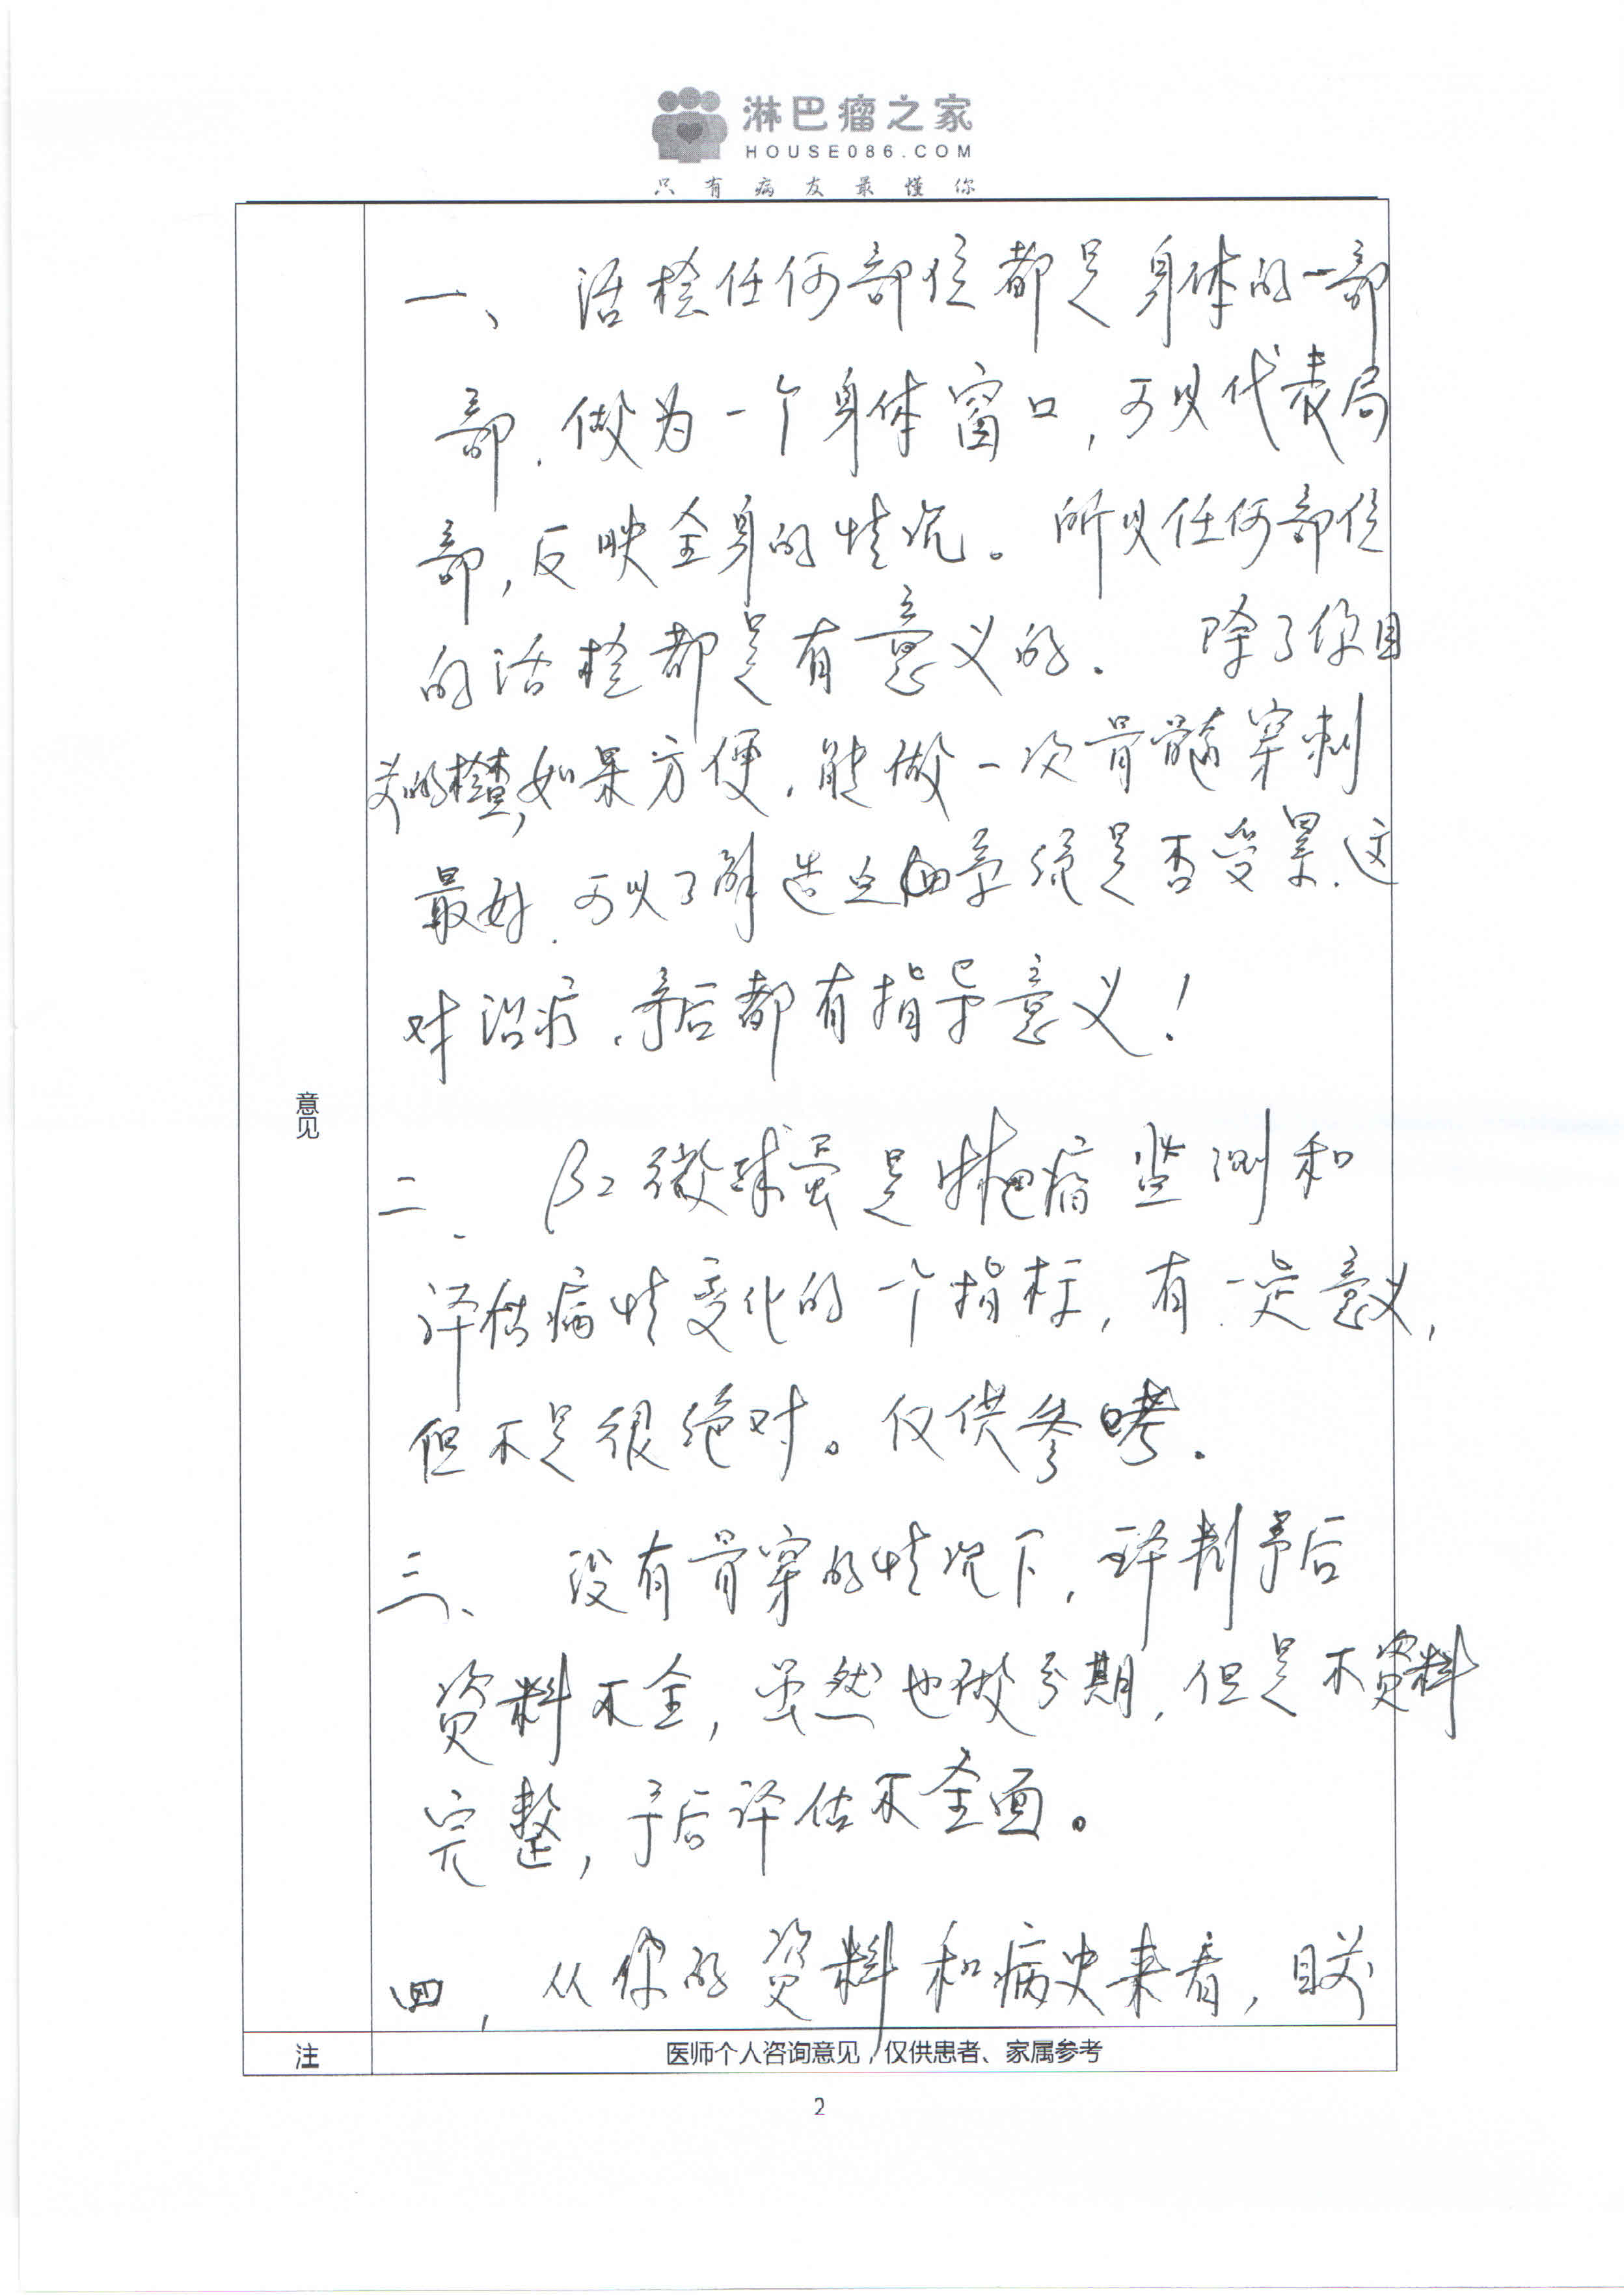 淋巴瘤之家
HOUSE086.COM
只有病友最懂你
一、活检任何部位都是身体的一部
部.做为一个身体窗口,可以代表局
部,反映全身的情况。所以任何部位
的活检都是有意义的.除了你目
前的检查,如果方便,能做一次骨髓穿刺
最好.可以了解造血系统是否受累.这
对治疗、予后都有指导意义!
意见
二、β2微球蛋是淋巴瘤监测和
评估病情变化的一个指标,有一定意义,
但不是很绝对。仅供参考.
三、没有骨穿的情况下,评判予后
资料不全,虽然也做分期,但是不资料
完整,予后评估不全面。
四、从你的资料和病史来看,目前
注 医师个人咨询意见,仅供患者、家属参考
2